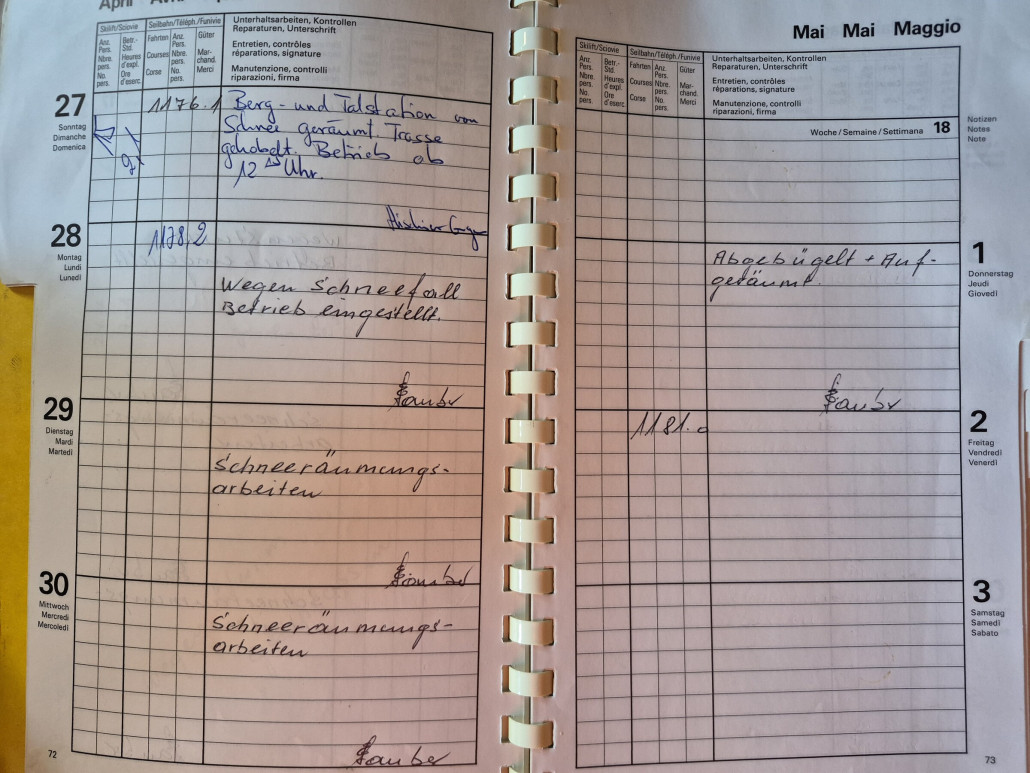 April
Skilift/Sciovie
Seilbahn/Téléph./Funivie
Unterhaltsarbeiten, Kontrollen
Reparaturen, Unterschrift
Entretien, contrôles
réparations, signature
Manutenzione, controlli
riparazioni, firma
Anz. Pers.
Nbre. pers.
No. pers.
Betr.- Std.
Heures d'expl.
Ore d'eserc.
Fahrten
Courses
Corse
Anz. Pers.
Nbre. pers.
No. pers.
Güter
Marchand.
Merci
27
Sonntag
Dimanche
Domenica
1176.1
Berg- und Talstation von
Schnee geräumt. Trasse
gehobelt. Betrieb ab
12 Uhr.
28
Montag
Lundi
Lunedì
1178.2
Wegen Schneefall
Betrieb eingestellt.
29
Dienstag
Mardi
Martedì
Schneeräumungs-
arbeiten
30
Mittwoch
Mercredi
Mercoledì
Schneeräumungs-
arbeiten
72
Mai Mai Maggio
Skilift/Sciovie
Seilbahn/Téléph./Funivie
Unterhaltsarbeiten, Kontrollen
Reparaturen, Unterschrift
Entretien, contrôles
réparations, signature
Manutenzione, controlli
riparazioni, firma
Anz. Pers.
Nbre. pers.
No. pers.
Betr.- Std.
Heures d'expl.
Ore d'eserc.
Fahrten
Courses
Corse
Anz. Pers.
Nbre. pers.
No. pers.
Güter
Marchand.
Merci
Woche / Semaine / Settimana 18
Notizen
Notes
Note
1
Donnerstag
Jeudi
Giovedì
Abgebügelt + Auf-
geräumt.
2
Freitag
Vendredi
Venerdì
1181.0
3
Samstag
Samedi
Sabato
73